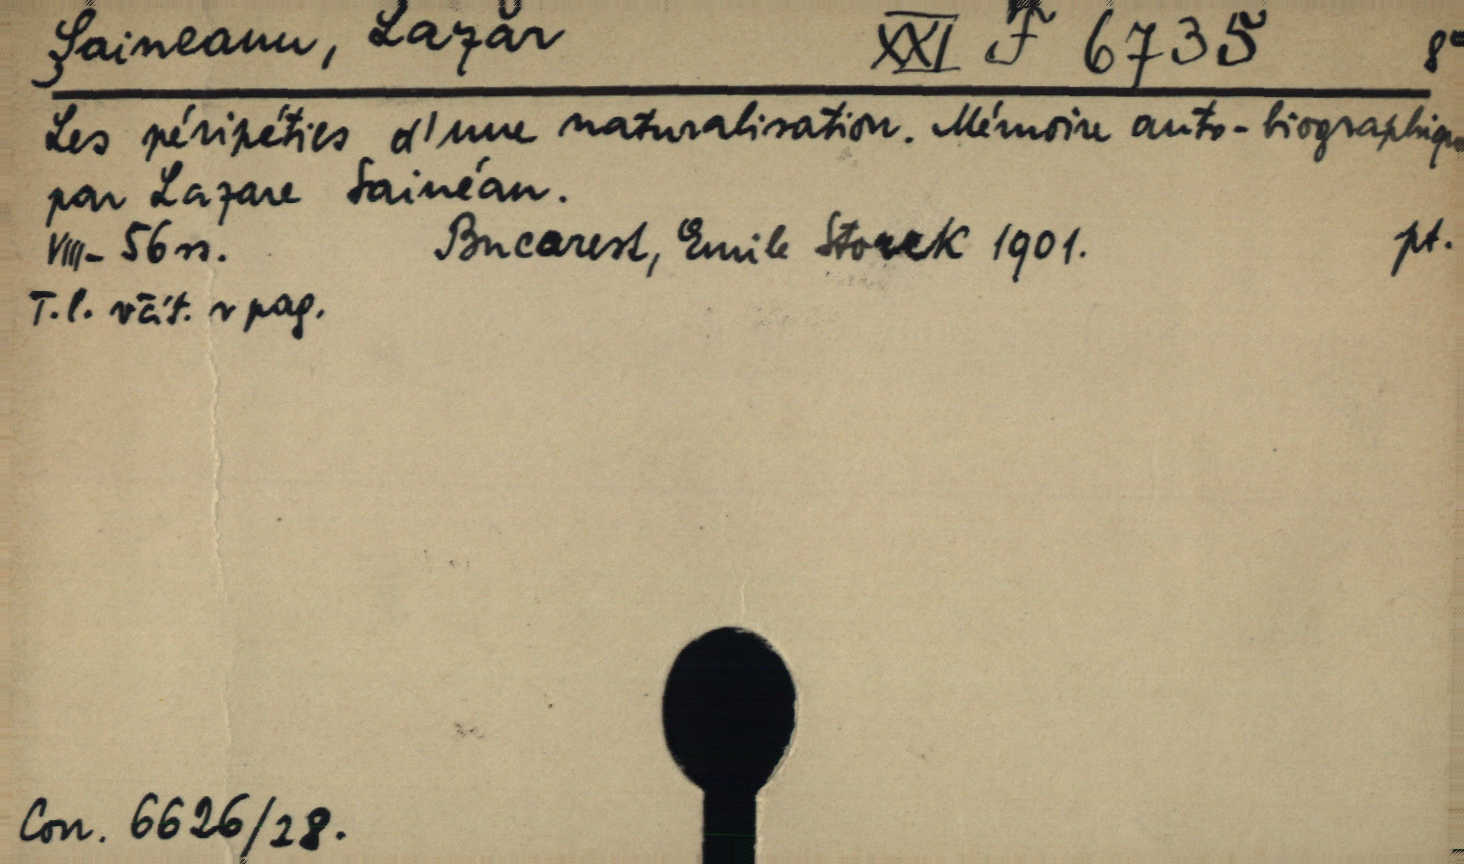 Şaineanu, Lazăr XXI F 6735 8°
Les péripéties d'une naturalisation. Mémoire auto-biographique
par Lazare Sainéan.
VIII-56 ss. Bucarest, Emile Storck 1901. pt.
T.l. včít. v pag.
Con. 6626/28.